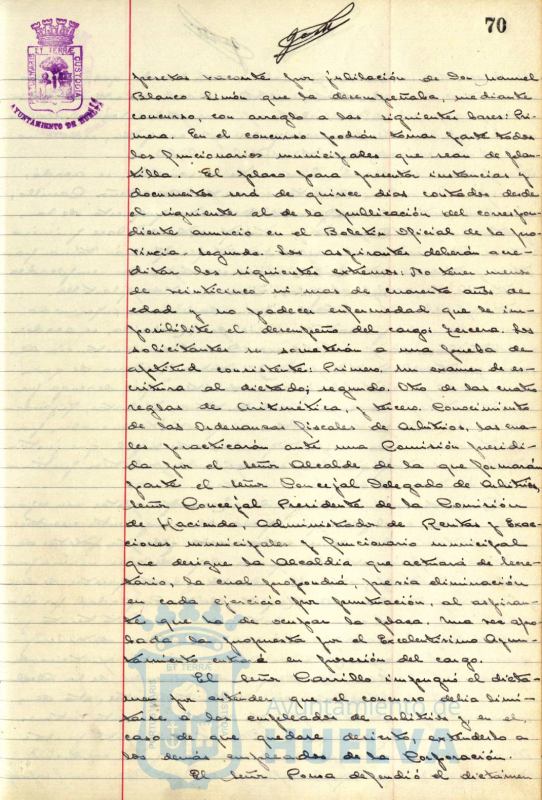 70
AYUNTAMIENTO DE HUELVA
pesetas vacante por jubilación de Don Manuel
Blanco Limón que la desempeñaba, mediante
concurso, con arreglo a las siguientes bases: Pri-
mera. En el concurso podrán tomar parte todos
los funcionarios municipales que sean de plan-
tilla. El plazo para presentar instancias y
documentos será de quince días contados desde
el siguiente al de la publicación del correspon-
diente anuncio en el Boletín Oficial de la pro-
vincia. Segunda. Los aspirantes deberán acre-
ditar los siguientes extremos: No tener menos
de veinticinco ni mas de cuarenta años de
edad y no padecer enfermedad que le im-
posibilite el desempeño del cargo; Tercera. Los
solicitantes se someterán a una prueba de
aptitud consistente: Primero. Un examen de es-
critura al dictado; segundo. Otro de las cuatro
reglas de Aritmética, y tercero. Conocimiento
de las Ordenanzas fiscales de Arbitrios, las cua-
les practicarán ante una Comisión presidi-
da por el Señor Alcalde de la que formarán
parte el Señor Concejal Delegado de Arbitrios,
Señor Concejal Presidente de la Comisión
de Hacienda, Administrador de Rentas y Exac-
ciones municipales y funcionario municipal
que designe la Alcaldía que actuará de Secre-
tario, la cual propondrá, previa eliminación
en cada ejercicio por puntuación, al aspiran-
te que ha de ocupar la plaza. Una vez apro-
bada la propuesta por el Excelentísimo Ayun-
tamiento entrará en posesión del cargo.
El Señor Carrillo impugnó el dicta-
men por entender que el concurso debía limi-
tarse a los empleados de arbitrios y en el
caso de que quedase desierto, extenderlo a
los demás empleados de la Corporación.
El Señor Ponsa defendió el dictamen
Ayuntamiento de
HUELVA